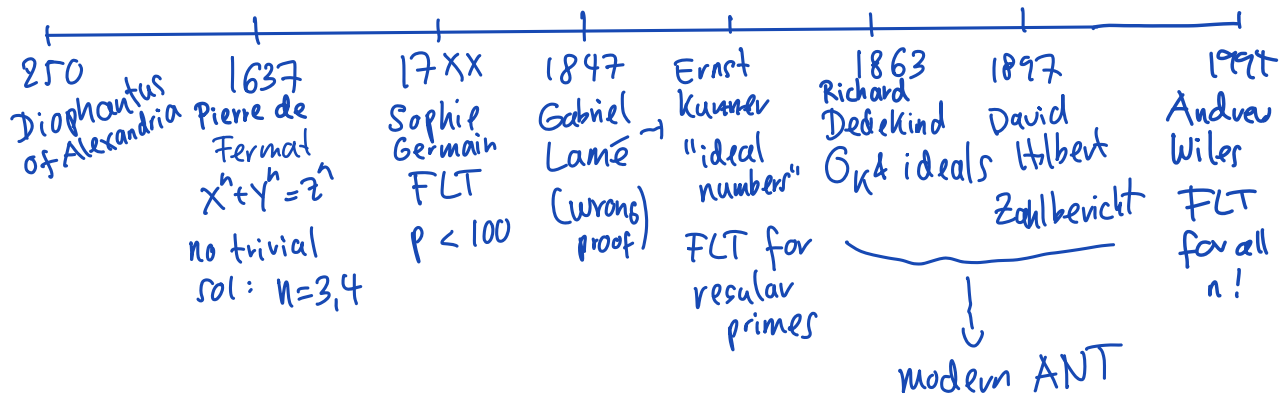 250
Diophantus
of Alexandria
1637
Pierre de
Fermat
xⁿ+yⁿ=zⁿ
no trivial
sol: n=3,4
17XX
Sophie
Germain
FLT
p < 100
1847
Gabriel
Lamé →
(wrong
proof)
Ernst
Kummer
"ideal
numbers"
FLT for
regular
primes
1863
Richard
Dedekind
O_K & ideals
1897
David
Hilbert
Zahlbericht
modern ANT
1994
Andrew
Wiles
FLT
for all
n!